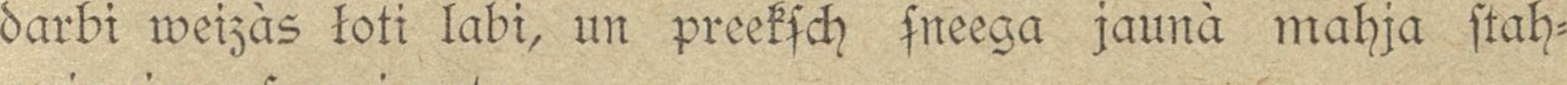 darbi weizàs łoti labi, un preekſch ſneega jaunà mahja ſtah⸗